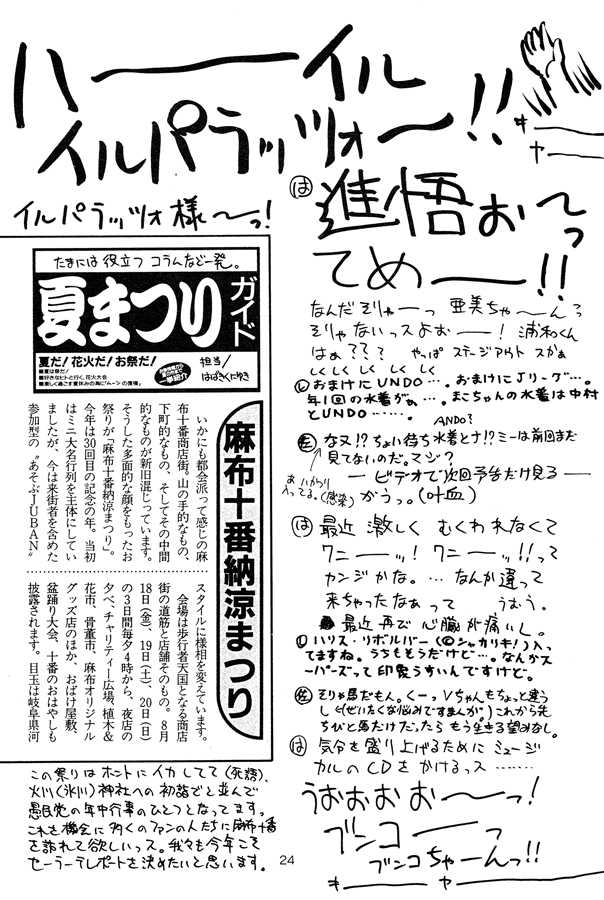 ハーーイル
イルパラッツォ〜!!
キ
ャ
イルパラッツォ様〜っ!
たまには役立つコラムなど一発。
夏まつり
ガイド
夏だ!花火だ!お祭だ!
担当/
はばきくにゆき
麻布十番納涼まつり
いかにも都会派って感じの麻
布十番商店街。山の手的なもの、
下町的なもの、そしてその中間
的なものが新旧混じっています。
そうした多面的な顔をもったお
祭りが、麻布十番納涼まつり。
今年は30回目の記念の年。当初
はミニ大名行列を主体にしてい
ましたが、今は来街者を含めた
参加型の〝あそぶJUBAN〟
スタイルに様相を変えています。
会場は歩行者天国となる商店
街の道筋と店舗そのもの。8月
18日(金)、19日(土)、20日(日)
の3日間毎夕4時から、夜店の
夕べ、チャリティー広場、植木&
花市、骨董市、麻布オリジナル
グッズ店のほか、おばけ屋敷、
盆踊り大会、十番のおはやしも
披露されます。目玉は岐阜県河
この祭りはホントにイカしてて(死語)、
火川(氷川)神社への初詣でと並んで
愚民党の年中行事のひとつとなってます。
これを機会に多くのファンの人たちに麻布十番
を訪れて欲しいっス。我々も今年こそ
セーラーテレポートを決めたいと思います。
24
は 進悟お〜っ
てめーー!!
なんだそりゃーっ 亜美ちゃ〜んっ
そりゃないっスよおーー! 浦和くん
はぁ??? やっぱステージアウトスかぁ
しくしくしくしくしく
し おまけにUNDO…。おまけにJリーグ…。
年1回の水着がぁ…。まこちゃんの水着は中村
とUNDO……。
ANDO?
佐 な又!?ちょい待ち水着とナ!?ミーは前回まだ
見てないのだ。マジ?
あ いかりが入ってる。(感染)
―ビデオで次回予告だけ見る―
がうっ。(吐血)
は 最近 激しく むくわれなくて
ワニーーッ! ワニーーッ!!って
カンジかな。…なんか違って
来ちゃったなぁって うぉう。
最近再で心臓が痛いし。
し ハリス・リボルバー(@シャカリキ!)入っ
てますね。うちもそうだけど…。なんかス
ーパーズって印象うすいんですけど。
佐 そりゃ馬だもん。くーっ。Vちゃんもちょっと違う
し(ぜいたくな悩みですまんが。)これから先
ちびと馬だけだったらもう生きる望みなし。
は 気分を盛り上げるためにミュージ
カルのCDをかけるっス……
うおおおお〜っ!
ブンコーーっ
ブンコちゃーんっ!!
キーーャーー